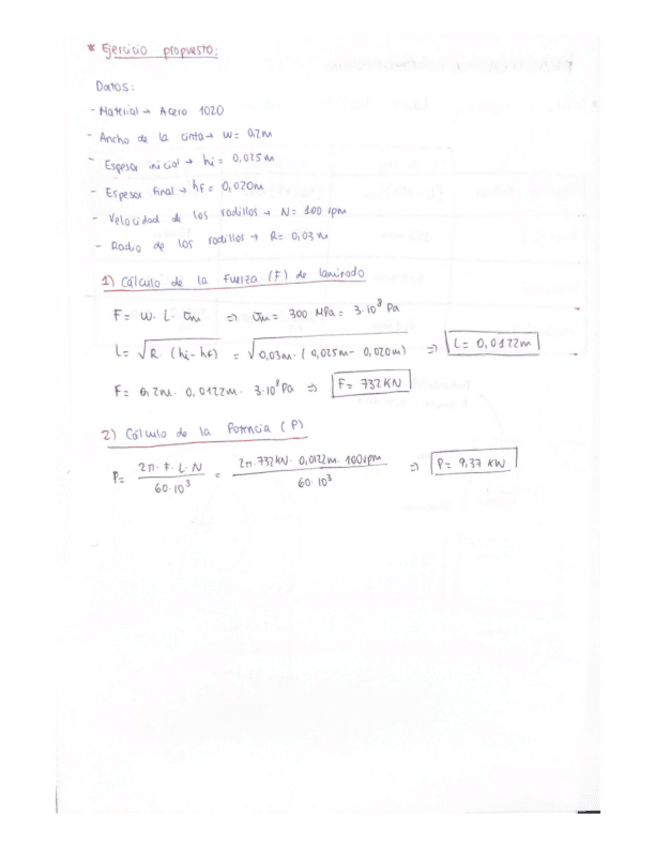 * Ejercicio propuesto:
Datos:
- Material → Acero 1020
- Ancho de la cinta → W= 0,2m
- Espesor inicial → hi = 0,025m
- Espesor final → hf = 0,020m
- Velocidad de los rodillos → N= 100 rpm
- Radio de los rodillos → R= 0,03m
1) Cálculo de la Fuerza (F) de laminado
F= W. L. σm ⇒ σm = 300 MPa = 3·10⁸ Pa
L= √R. (hi-hf) = √0,03m. (0,025m- 0,020m) ⇒ L= 0,0122m
F= 0,2m. 0,0122m. 3·10⁸ Pa ⇒ F= 732 KN
2) Cálculo de la Potencia (P)
P= 2π. F. L. N / 60·10³ = 2π. 732kN. 0,0122m. 100rpm / 60·10³ ⇒ P= 9,37 KW